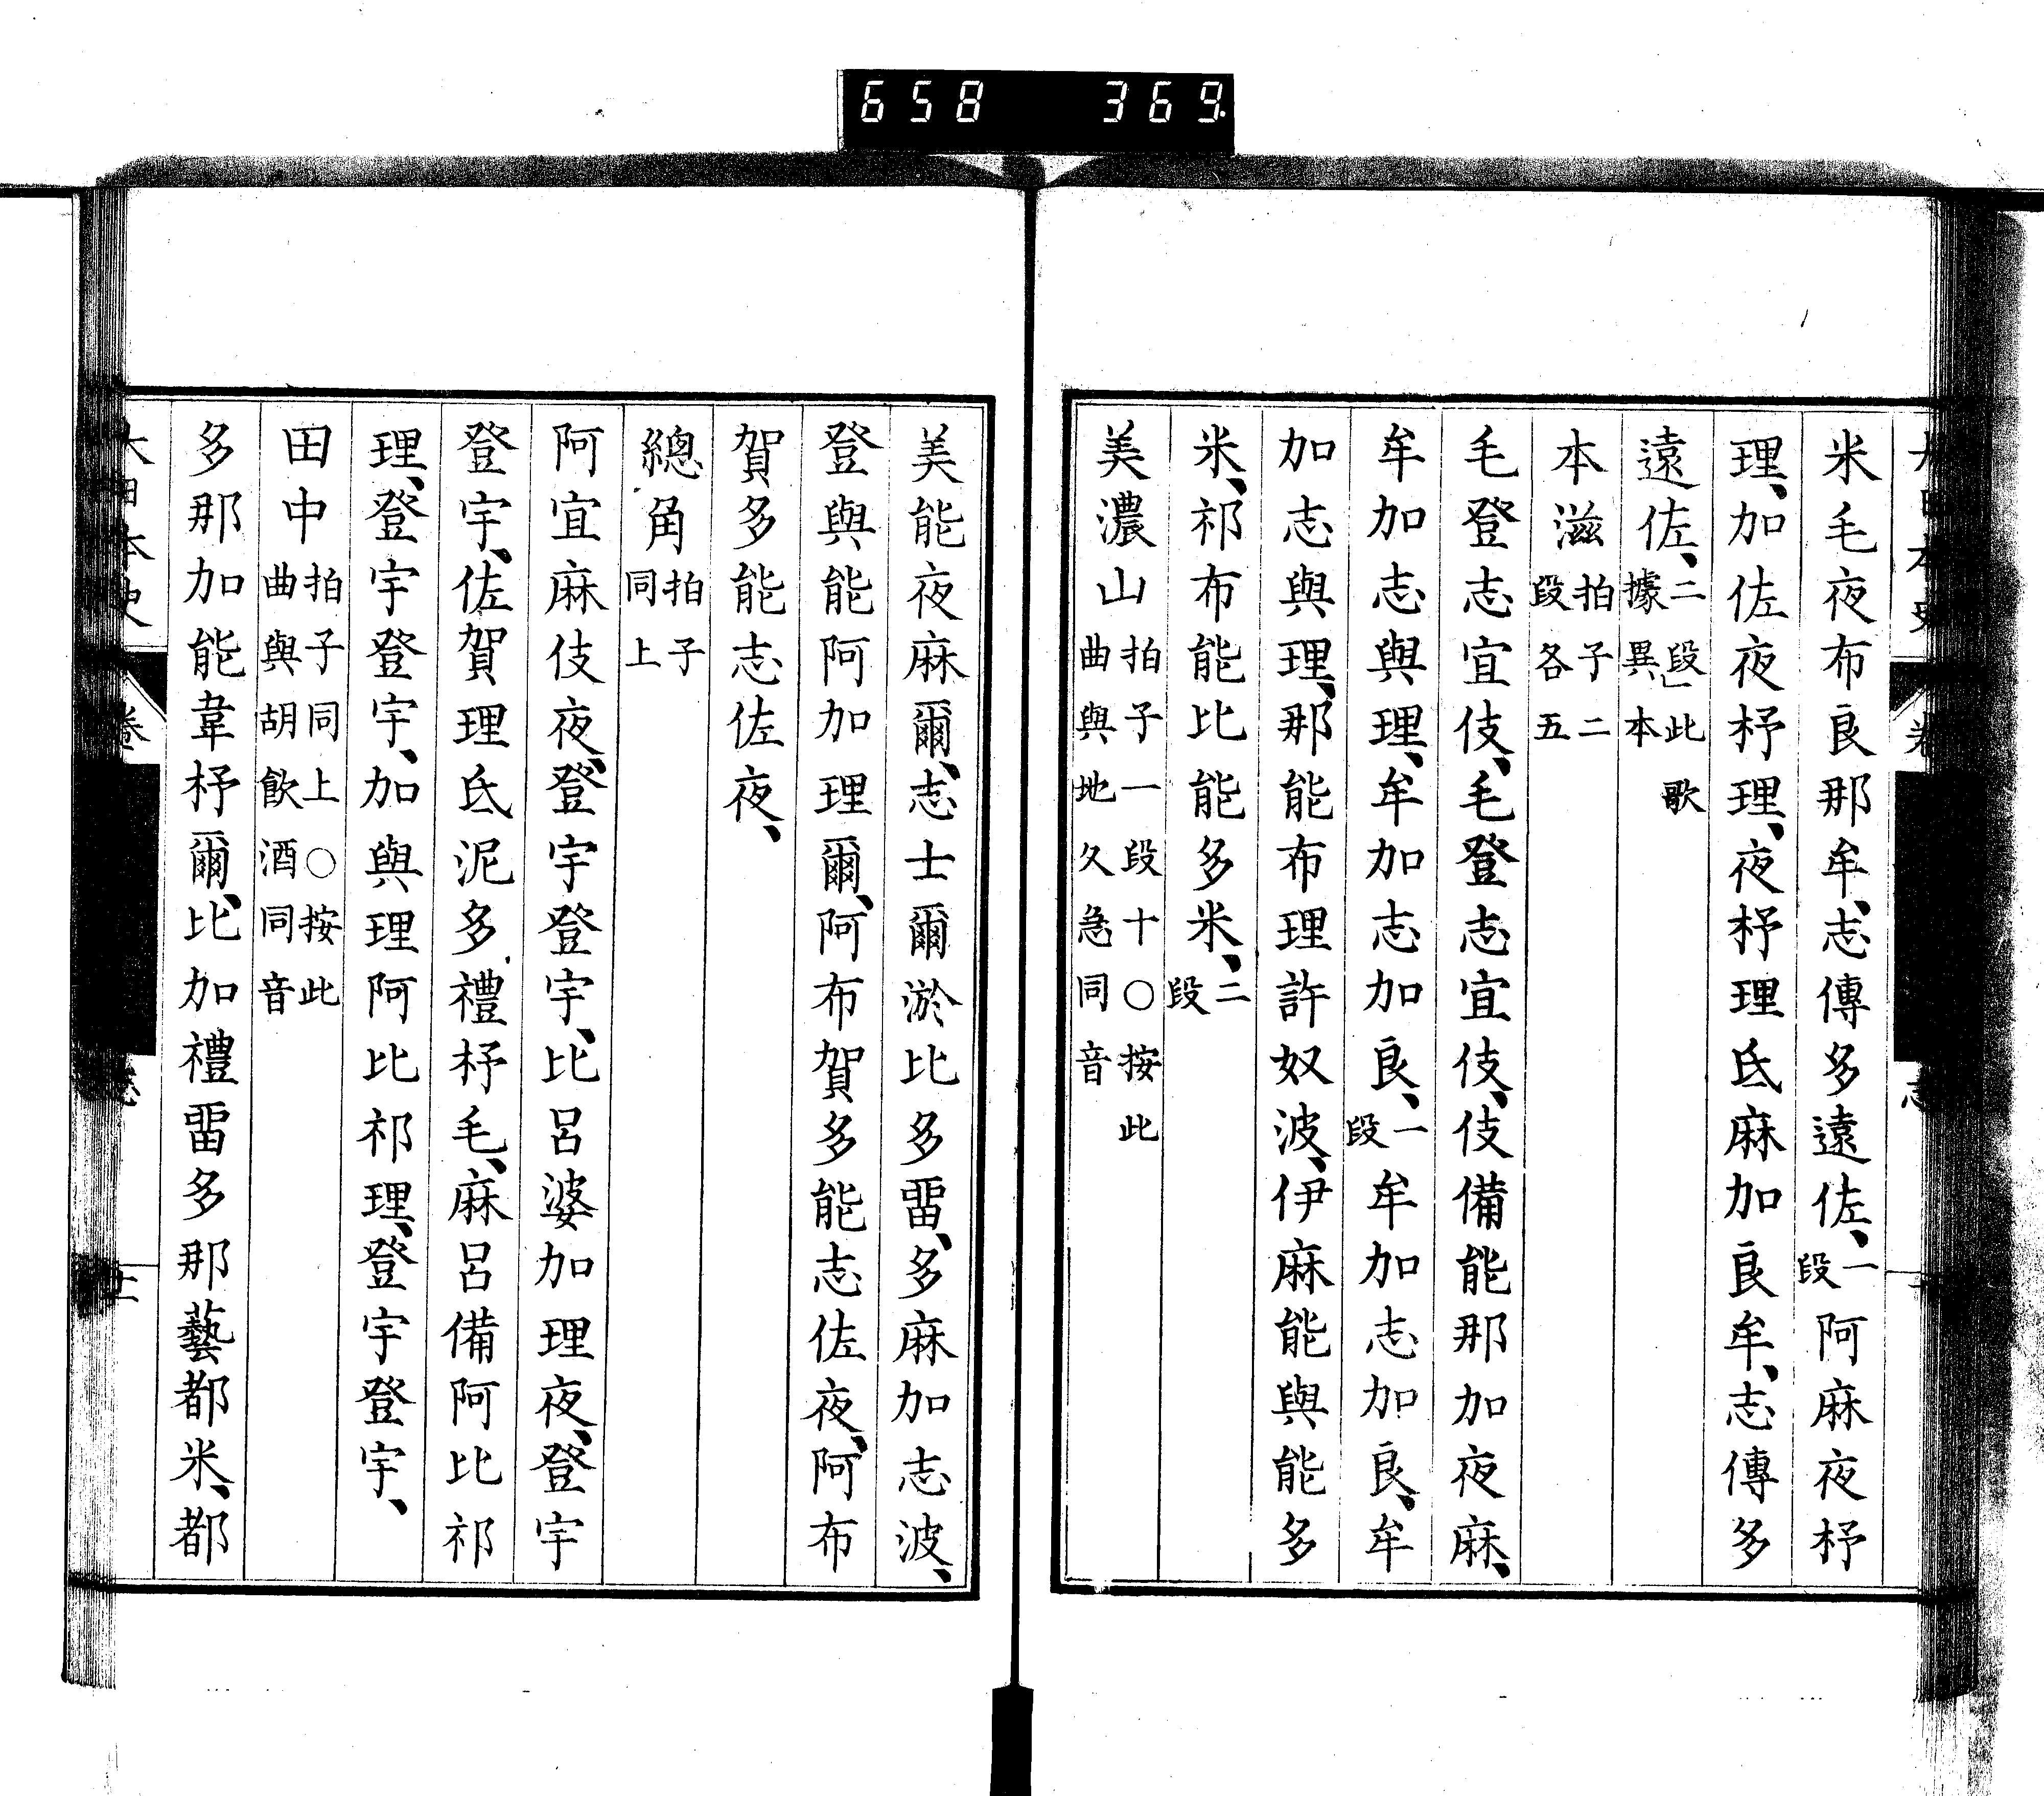 658 369
米毛夜布良那牟、志傳多遠佐、一段阿麻夜杼
理、加佐夜杼理、夜杼理氐麻加良牟、志傳多
遠佐、二段此歌據異本
本滋拍子二段各五
毛登志宜伎、毛登志宜伎、伎備能那加夜麻、
牟加志與理、牟加志加良、一段牟加志加良、牟
加志與理、那能布理許奴波、伊麻能與能多
米、祁布能比能多米、二段
美濃山拍子一段十○按此曲與地久急同音
美能夜麻爾、志士爾淤比多畱、多麻加志波、
登與能阿加理爾、阿布賀多能志佐夜、阿布
賀多能志佐夜、
總角拍子同上
阿宜麻伎夜、登宇登宇、比呂婆加理夜、登宇
登宇、佐賀理氐泥多禮杼毛、麻呂備阿比祁
理、登宇登宇、加與理阿比祁理、登宇登宇、
田中拍子同上○按此曲與胡飮酒同音
多那加能韋杼爾、比加禮畱多那藝都米、都
大日本史 卷 志 十一